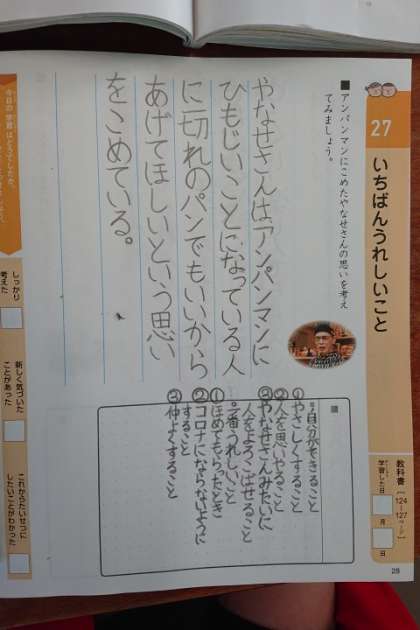 27
いちばんうれしいこと
教科書
124
〜127
ページ
学習した日
月
日
■アンパンマンにこめたやなせさんの思いを考え
てみましょう。
やなせさんはアンパンマンに
ひもじいことになっている人
に一切れのパンでもいいから
あげてほしいという思い
をこめている。
自分ができること
①やさしくすること
②人を思いやること
③やなせさんみたいに
人をよろこばせること
一番うれしいこと
①ほめてもらったとき
②コロナにならないように
すること
③仲よくすること
今日の学習はどうでしたか。
しっかり
考えた
新しく気づいた
ことがあった
これからたいせつに
したいことがわかった
28